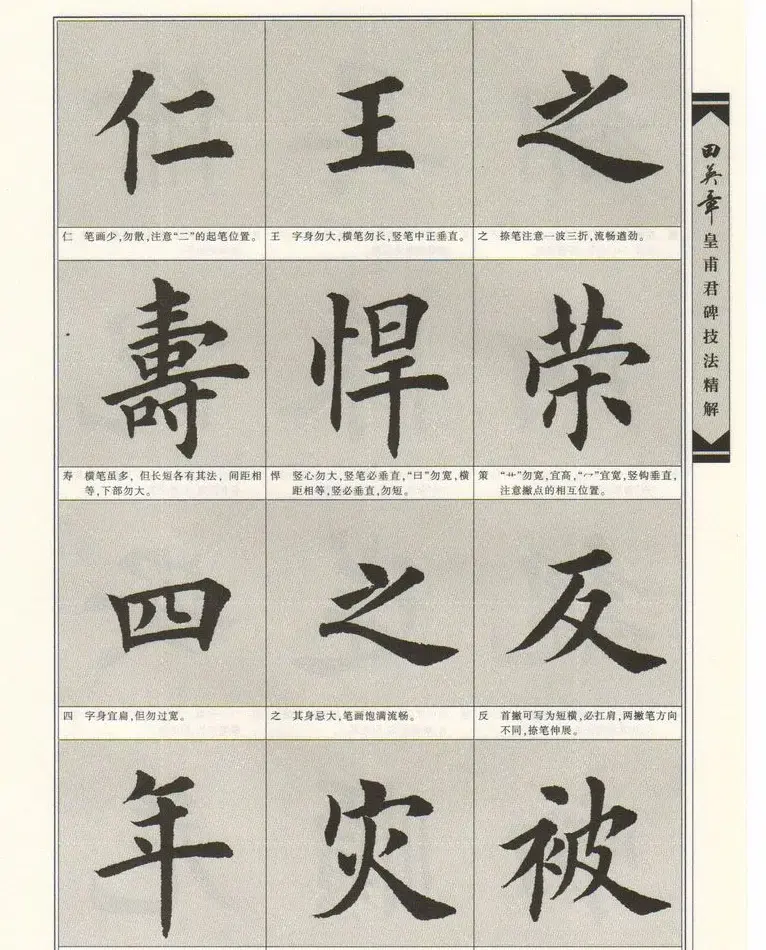 仁
王
之
仁 笔画少,勿散,注意“二”的起笔位置。
王 字身勿大,横笔勿长,竖笔中正垂直。
之 捺笔注意一波三折,流畅遒劲。
壽
悍
荣
寿 横笔虽多,但长短各有其法,间距相
等,下部勿大。
悍 竖心勿大,竖笔必垂直,“日”勿宽,横
距相等,竖必垂直,勿短。
策 “艹”勿宽,宜高,“冖”宜宽,竖钩垂直,
注意撇点的相互位置。
四
之
反
四 字身宜扁,但勿过宽。
之 其身忌大,笔画饱满流畅。
反 首撇可写为短横,必扛肩,两撇笔方向
不同,捺笔伸展。
年
灾
被
田英章皇甫君碑技法精解